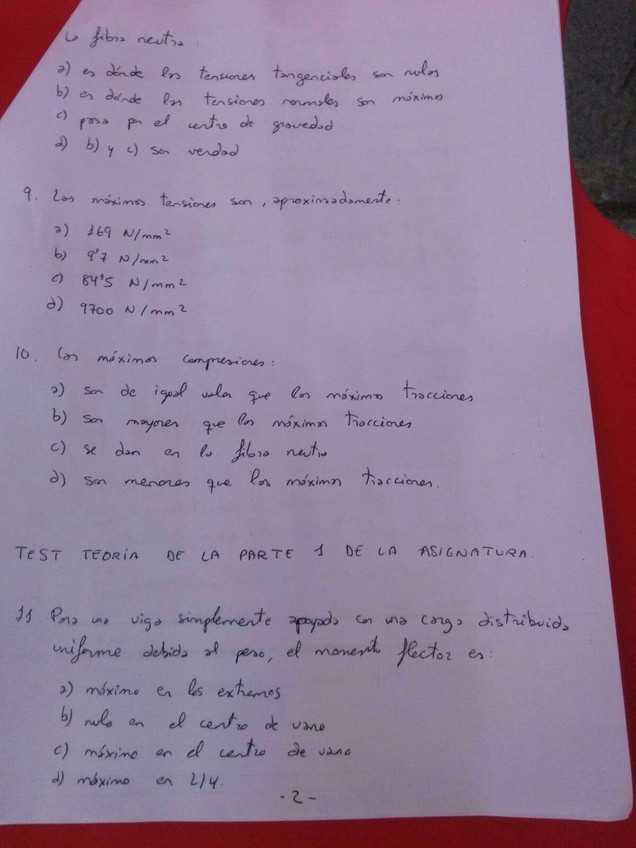 La fibra neutra:
a) es dónde las tensiones tangenciales son nulas
b) es dónde las tensiones normales son máximas
c) pasa por el centro de gravedad
d) b) y c) son verdad
9. Las máximas tensiones son, aproximadamente:
a) 169 N/mm²
b) 9'7 N/mm²
c) 84'5 N/mm²
d) 9700 N/mm²
10. Las máximas compresiones:
a) son de igual valor que las máximas tracciones
b) son mayores que las máximas tracciones
c) se dan en la fibra neutra
d) son menores que las máximas tracciones.
TEST TEORÍA DE LA PARTE 1 DE LA ASIGNATURA
11 Para una viga simplemente apoyada con una carga distribuida
uniforme debida al peso, el momento flector es:
a) máximo en los extremos
b) nulo en el centro de vano
c) máximo en el centro de vano
d) máximo en L/4.
-2-